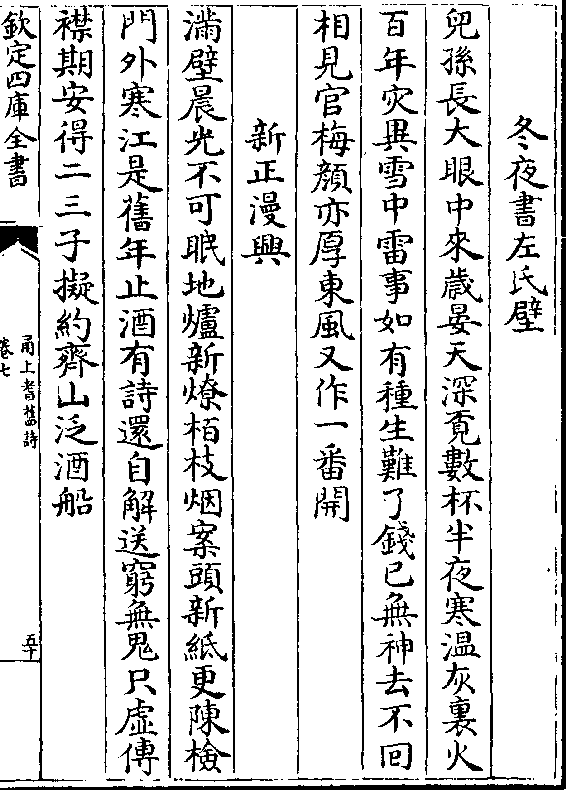 冬夜書左氏壁
兒孫長大眼中來歲晏天深覔數杯半夜寒温灰裏火
百年灾異雪中雷事如有種生難了錢已無神去不回
相見官梅顔亦厚東風又作一番開
新正漫興
滿壁晨光不可眠地爐新燎栢枝烟案頭新紙更陳檢
門外寒江是舊年止酒有詩還自解送窮無鬼只虛傳
襟期安得二三子擬約齊山泛酒船
欽定四庫全書
甬上耆舊詩
卷七
五十